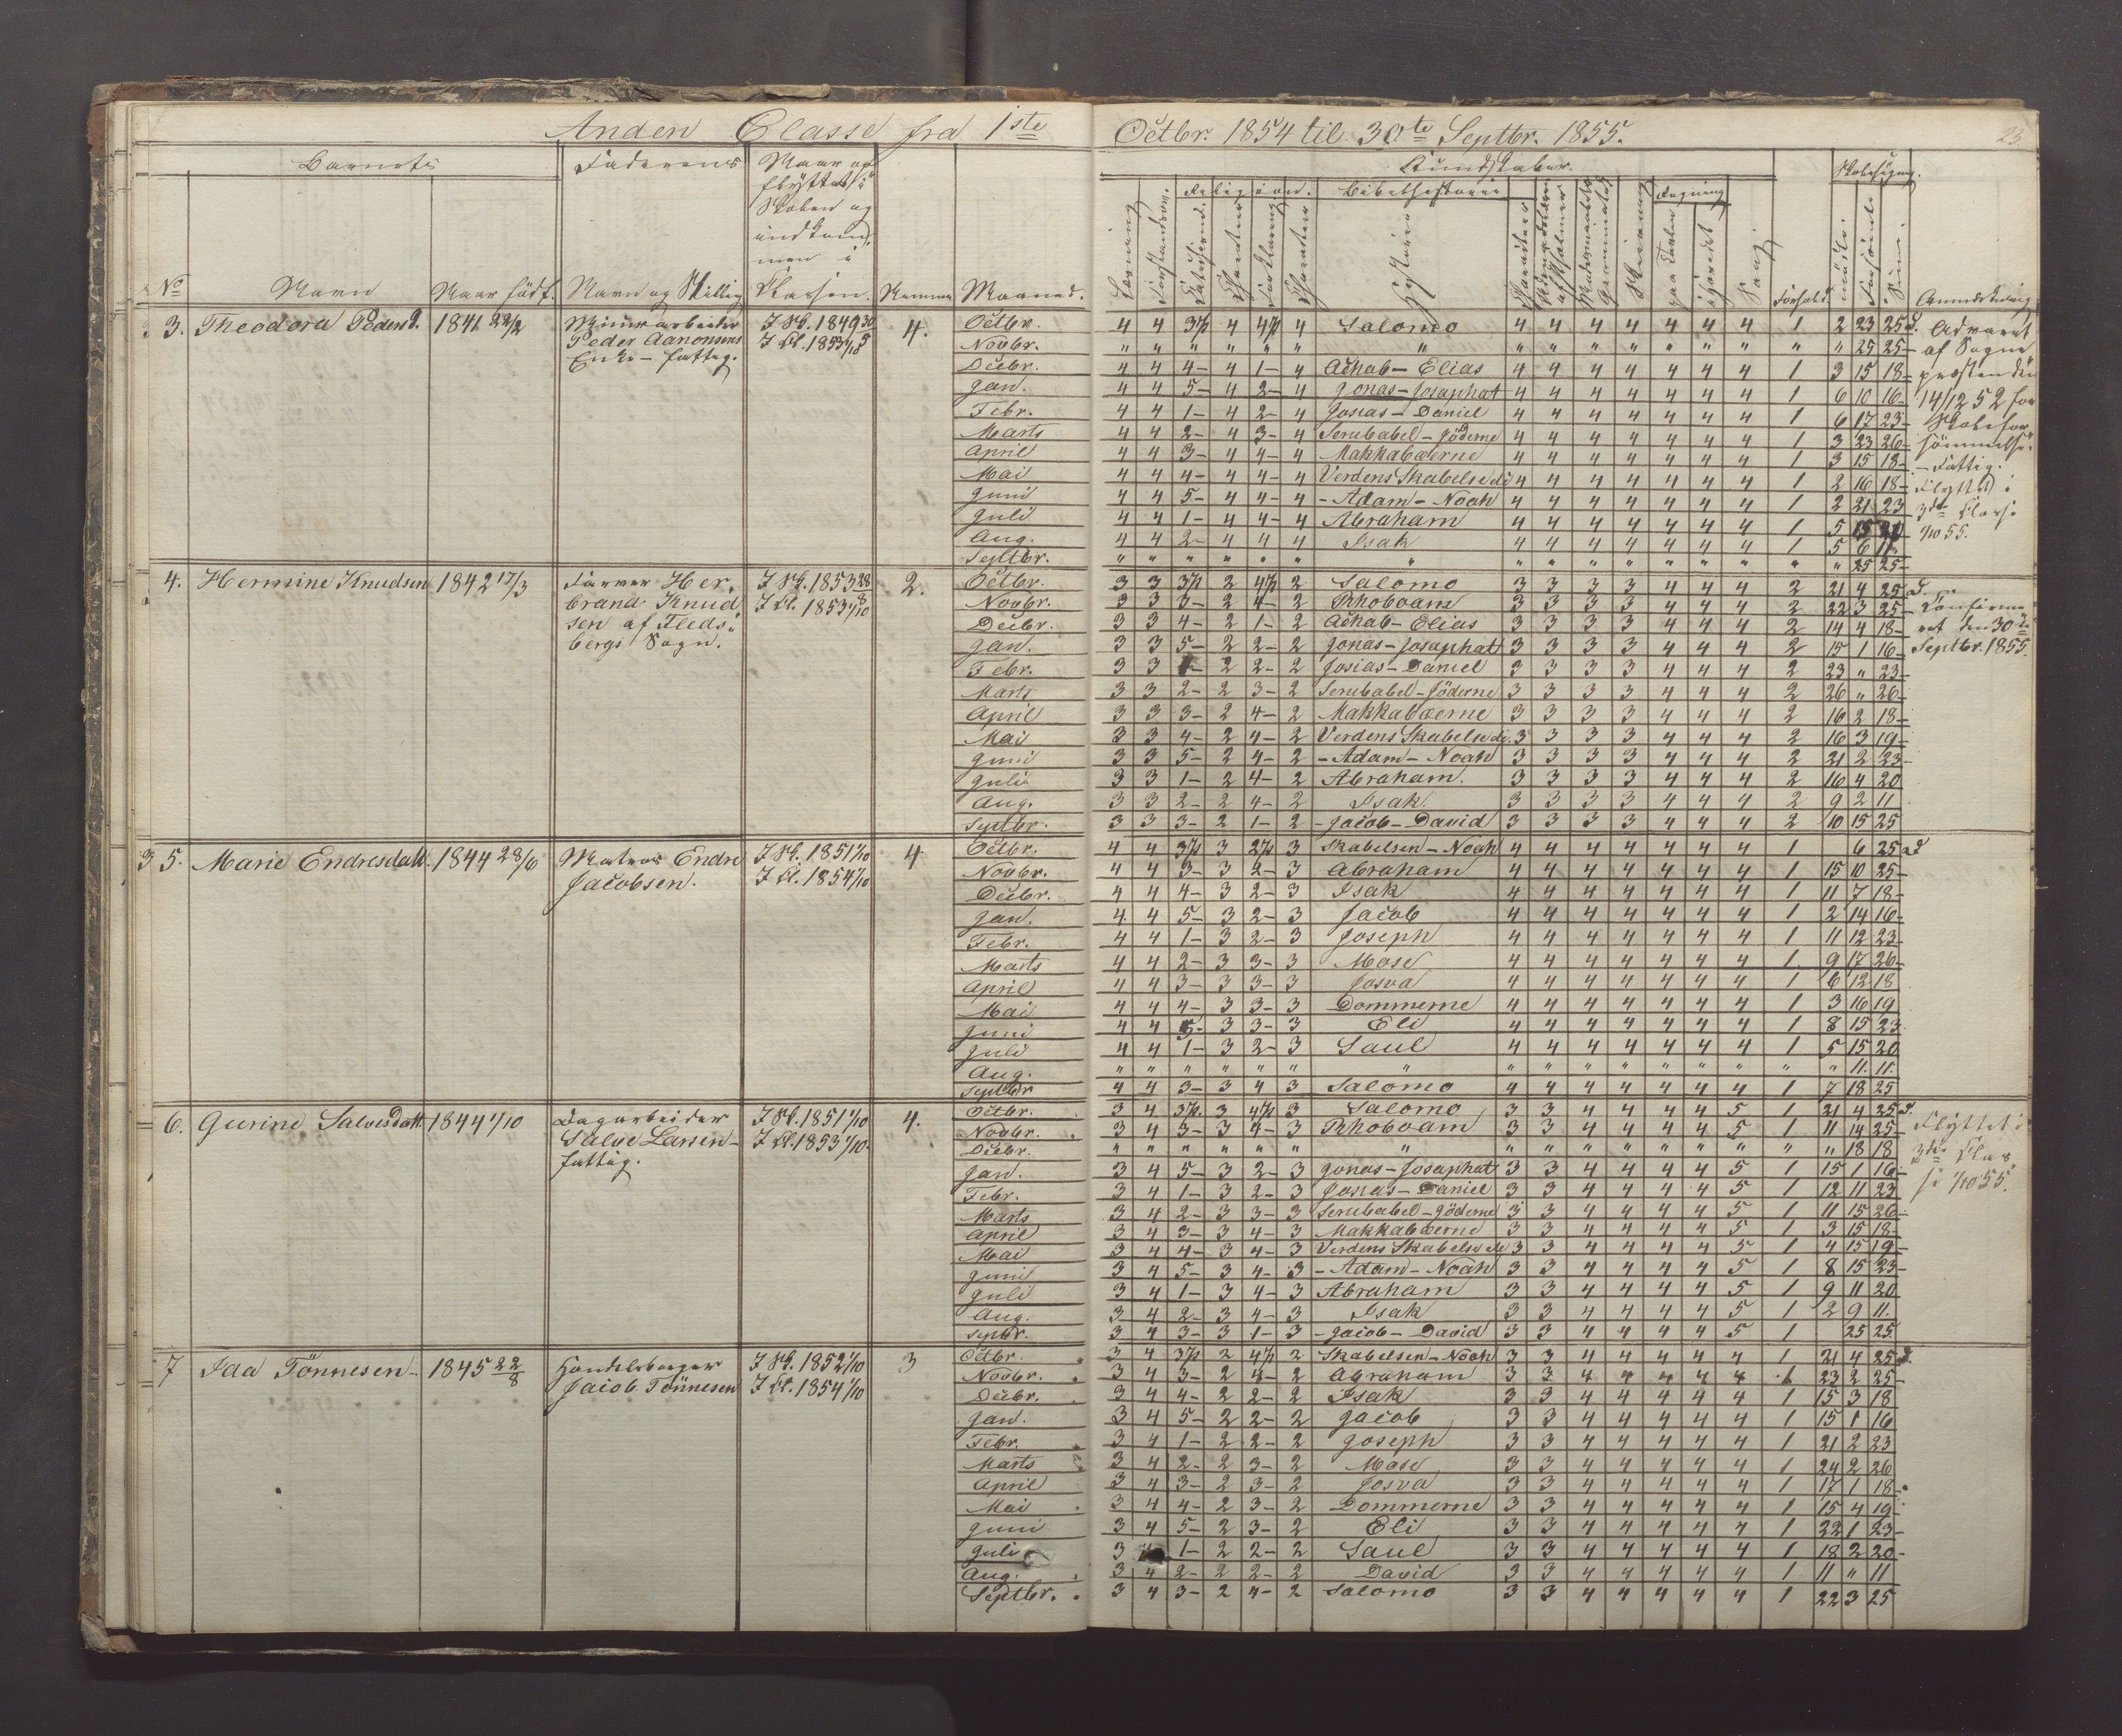 Anden Classe fra 1ste Octbr. 1854 til 30te Septbr. 1855.
23
Barnets Faderens Naar og
flyttet i
Skolen og
indkom=
men i
Kundskaber. Skolesøgning.
Religion. Bibelhistorie Regning
No Navn Naar født. Navn og Stilling Classen. Nummer Maaned.
Læsning Forstandsøv. Characteer Forklaring Character Historier Skrivning paa Tavlen i Hovedet Sang Forhold. mødt Forsømt Sum. Anmærkning
3. Theodora Pedersd. 1841 22/2 Minearbeider
Peder Aanonsens
Enke – fattig.
I Sk. 1849 30/5
I Cl. 1853 1/10
4.
Octbr. 4 4 3½ 4 4½ 4 Salomo 4 4 4 4 4 4 4 1 2 23 25 d.
Novbr. " " " " " " " " " " " " " " " " 25 25
Decbr. 4 4 4– 4 1– 4 Achab – Elias 4 4 4 4 4 4 4 1 3 15 18
Jan. 4 4 5– 4 2– 4 Jonas – Josaphat 4 4 4 4 4 4 4 1 6 10 16
Febr. 4 4 1– 4 2– 4 Josias – Daniel 4 4 4 4 4 4 4 1 6 17 23
Marts 4 4 2– 4 3– 4 Serubabel – Jöderne 4 4 4 4 4 4 4 1 3 23 26
April 4 4 3– 4 4– 4 Makkabæerne 4 4 4 4 4 4 4 1 3 15 18
Mai 4 4 4– 4 4– 4 Verdens Skabelse di 4 4 4 4 4 4 4 1 2 16 18
Juni 4 4 5– 4 4– 4 – Adam – Noah 4 4 4 4 4 4 4 1 2 21 23
Juli 4 4 1– 4 4– 4 Abraham 4 4 4 4 4 4 4 1 5 15 20
Aug. 4 4 2– 4 4 4 Isak 4 4 4 4 4 4 4 1 5 6 11
Septbr. " " " " " " " " " " " " " " " " 25 25
Advaret
af Sogne
præsten den
14/12 52 for
Skolefor
sömmelse.
– Fattig.
Flyttet i
3die Classe
1/10 55.
4. Hermine Knudsen 1842 17/3 Farver Her=
brand Knud
sen af Fleds=
bergs Sogn.
I Sk. 1853 28/8
I Cl. 1853 1/10
2.
Octbr. 3 3 3½ 2 4½ 2 Salomo 3 3 3 3 4 4 4 2 21 4 25 d.
Novbr. 3 3 3– 2 4– 2 Rhoboam 3 3 3 3 4 4 4 2 22 3 25
Decbr. 3 3 4– 2 1– 2 Achab – Elias 3 3 3 3 4 4 4 2 14 4 18
Jan. 3 3 5– 2 2– 2 Jonas – Josaphat 3 3 3 3 4 4 4 2 15 1 16
Febr. 3 3 1– 2 2– 2 Josias – Daniel 3 3 3 3 4 4 4 2 23 " 23
Marts 3 3 2– 2 3– 2 Serubabel – Jöderne 3 3 3 3 4 4 4 2 26 " 26
April 3 3 3– 2 4– 2 Makkabæerne 3 3 3 3 4 4 4 2 16 2 18
Mai 3 3 4– 2 4– 2 Verdens Skabelse di. 3 3 3 3 4 4 4 2 16 3 19
Juni 3 3 5– 2 4– 2 – Adam – Noah 3 3 3 3 4 4 4 2 21 2 23
Juli 3 3 1– 2 4– 2 Abraham. 3 3 3 3 4 4 4 2 16 4 20
Aug. 3 3 2– 2 4– 2 Isak. 3 3 3 3 4 4 4 2 9 2 11
Septbr. 3 3 3– 2 1– 2 – Jacob – David 3 3 3 3 4 4 4 2 10 15 25
Confirme
ret den 30te
Septbr. 1855.
3 5. Marie Endresdatt. 1844 28/6 Matros Endre
Jacobsen.
I Sk. 1851 1/10
I Cl. 1854 1/10
4
Octbr. 4 4 3½ 3 2½ 3 Skabelsen – Noah 4 4 4 4 4 4 4 1 6 25 d
Novbr. 4 4 3– 3 2– 3 Abraham 4 4 4 4 4 4 4 1 15 10 25
Decbr. 4 4 4– 3 2– 3 Isak 4 4 4 4 4 4 4 1 11 7 18
Jan. 4 4 5– 3 2– 3 Jacob 4 4 4 4 4 4 4 1 2 14 16
Febr. 4 4 1– 3 2– 3 Joseph 4 4 4 4 4 4 4 1 11 12 23
Marts 4 4 2– 3 3– 3 Mose 4 4 4 4 4 4 4 1 9 17 26
April 4 4 3– 3 3– 3 Josva 4 4 4 4 4 4 4 1 6 12 18
Mai 4 4 4– 3 3– 3 Dommerne 4 4 4 4 4 4 4 1 3 16 19
Juni 4 4 5– 3 3– 3 Eli 4 4 4 4 4 4 4 1 8 15 23
Juli 4 4 1– 3 2– 3 Saul 4 4 4 4 4 4 4 1 5 15 20
Aug. " " " " " " " " " " " " " " " " 11. 11.
Septbr 4 4 3– 3 4 3 Salomo 4 4 4 4 4 4 4 1 7 18 25
6. Gurine Salvesdatt. 1844 1/10 Dagarbeider
Salve Larsen –
fattig.
I Sk. 1851 1/10
I Cl. 1853 1/10.
4.
Octbr. 3 4 3½. 3 4½ 3 Salomo 3 3 4 4 4 4 5 1 21 4 25 d.
Novbr. 3 4 3– 3 4– 3 Rhoboam 3 3 4 4 4 4 5 1 11 14 25
Decbr. " " " " " " " " " " " " " " " " 18 18
Jan. 3 4 5– 3 2– 3 Jonas – Josaphat 3 3 4 4 4 4 5 1 15 1 16
Febr. 3 4 1– 3 2– 3 Josias – Daniel 3 3 4 4 4 4 5 1 12 11 23
Marts 3 4 2– 3 3– 3 Serubabel – Jöderne 3 3 4 4 4 4 5 1 11 15 26
April 3 4 3– 3 4– 3 Makkabæerne 3 3 4 4 4 4 5 1 3 15 18
Mai 3 4 4– 3 4– 3 Verdens Skabelse di 3 3 4 4 4 4 5 1 4 15 19
Juni 3 4 5– 3 4– 3 – Adam – Noah 3 3 4 4 4 4 5 1 8 15 23
Juli 3 4 1– 3 4– 3 Abraham 3 3 4 4 4 4 5 1 9 11 20
Aug. 3 4 2– 3 4– 3 Isak 3 3 4 4 4 4 5 1 2 9 11.
Septbr. 3 4 3– 3 1– 3 – Jacob – David 3 3 4 4 4 4 5 1 25 25
Flyttet i
3die Clas
se 1/10 55.
7 Ida Tönnesen – 1845 22/8 Handelsborger
Jacob Tönnesen
I Sk. 1852 1/10
I Cl. 1854 1/10
3
Octbr. 3 4 3½ 2 4½ 2 Skabelsen – Noah 3 3 4 4 4 4 4 1 21 4 25 d.
Novbr. 3 4 3– 2 4– 2 Abraham 3 3 4 4 4 4 4 1 23 2 25
Decbr. 3 4 4– 2 2– 2 Isak 3 3 4 4 4 4 4 1 15 3 18
Jan. 3 4 5– 2 2– 2 Jacob 3 3 4 4 4 4 4 1 15 1 16
Febr. 3 4 1– 2 2– 2 Joseph 3 3 4 4 4 4 4 1 21 2 23
Marts 3 4 2– 2 3– 2 Mose 3 3 4 4 4 4 4 1 24 2 26
April 3 4 3– 2 3– 2 Josva 3 3 4 4 4 4 4 1 17 1 18
Mai 3 4 4– 2 3– 2 Dommerne 3 3 4 4 4 4 4 1 15 4 19
Juni 3 4 5– 2 3– 2 Eli 3 3 4 4 4 4 4 1 22 1 23
Juli 3 1– 2 2– 2 Saul 3 3 4 4 4 4 4 1 18 2 20
Aug. 3 4 2– 2 2– 2 David 3 3 4 4 4 4 4 1 11 " 11
Septbr. 3 4 3– 2 4– 2 Salomo 3 3 4 4 4 4 4 1 22 3 25